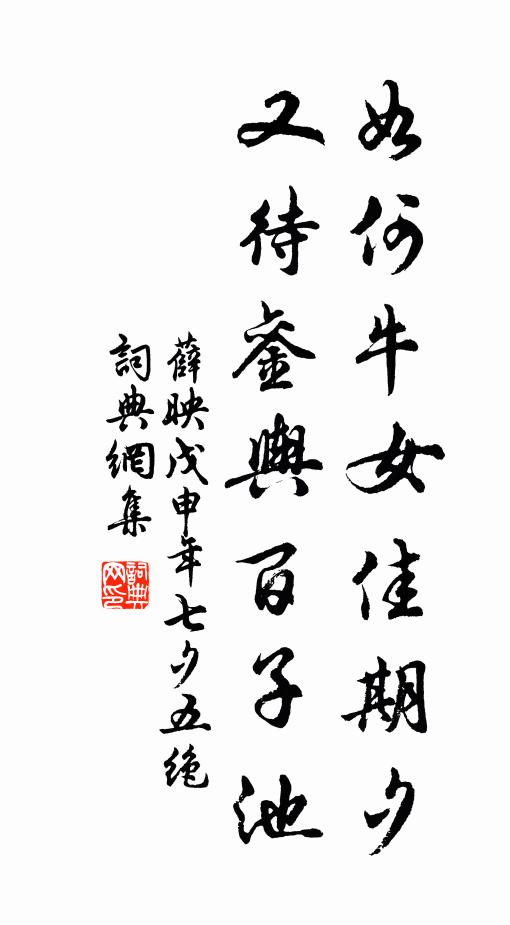 如何牛女佳期夕
又待銮舆百子池
薛映戊申年七夕五绝
詞典網集
詞典网印